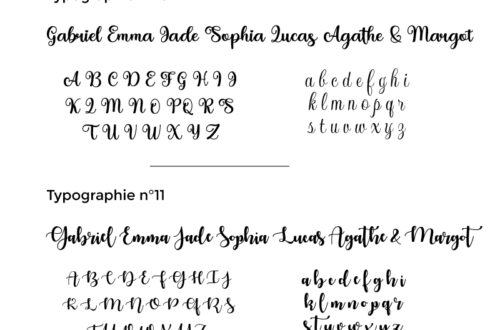 Gabriel Emma Jade Sophia Lucas Agathe & Margot
A B C D E F G H I J
K L M N O P Q R S
T U V W X Y Z
a b c d e f g h i
k l m n o p q r
s t u v w x y z
Typographie n°11
Gabriel Emma Jade Sophia Lucas Agathe & Margot
A B C D E F G H I J
K L M N O P Q R S
T U V W X Y Z
a b c d e f g h i
k l m n o p q r
s t u v w x y z